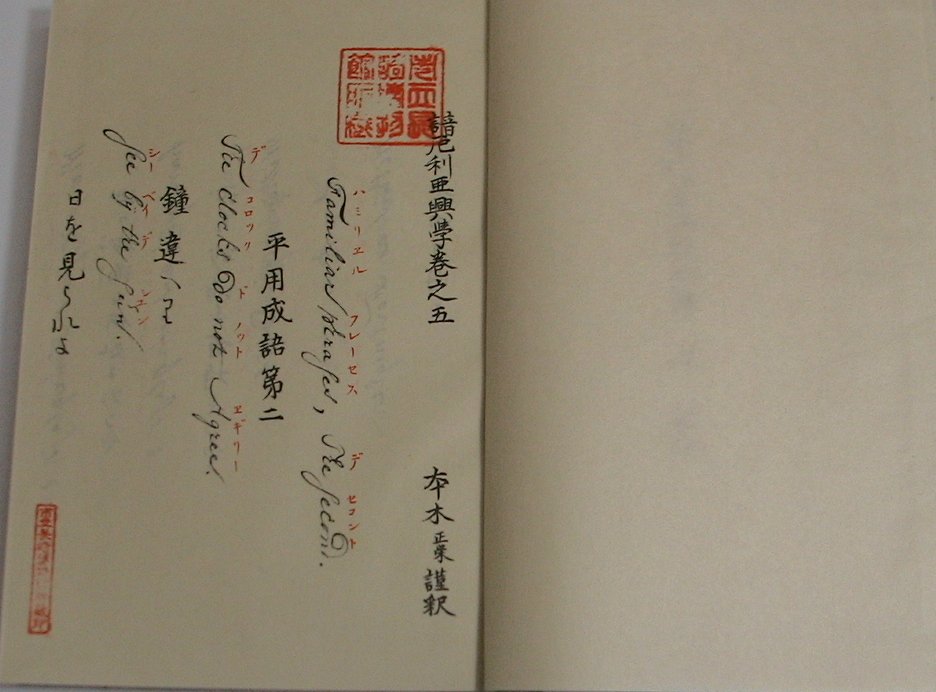 諳厄利亜興學巻之五
本木正栄謹釈
ハミリヱル フレーセス デ セコント
Familiar phrases, The second.
平用成語第二
デ コロック ド ノット ヱギリー
The clocks Do not Agree.
鐘違
シー ベイ デ
See by the Sun.
日を見られよ